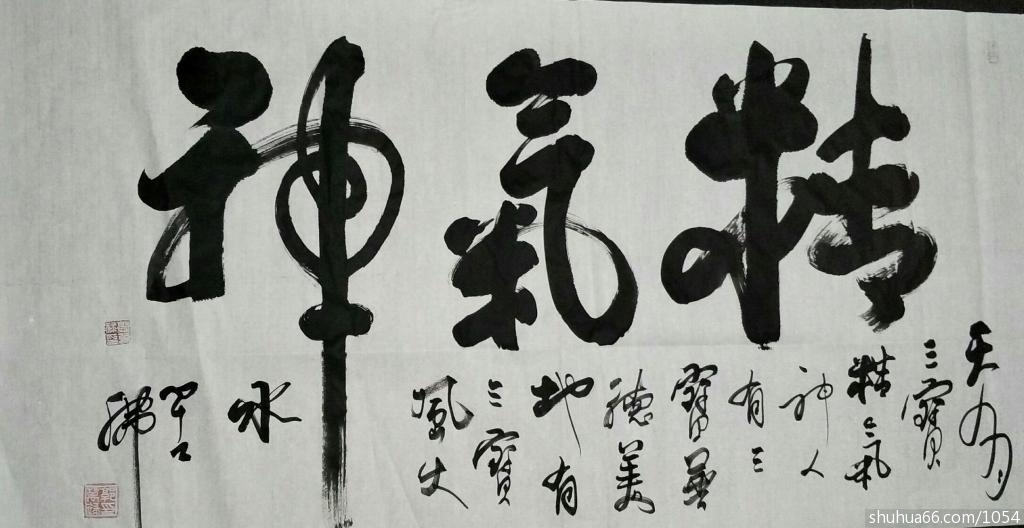 精氣神
天有
三寶
精氣
神人
有三
寶善
德美
地有
三寶
風火
水
shuhua66.com/1054